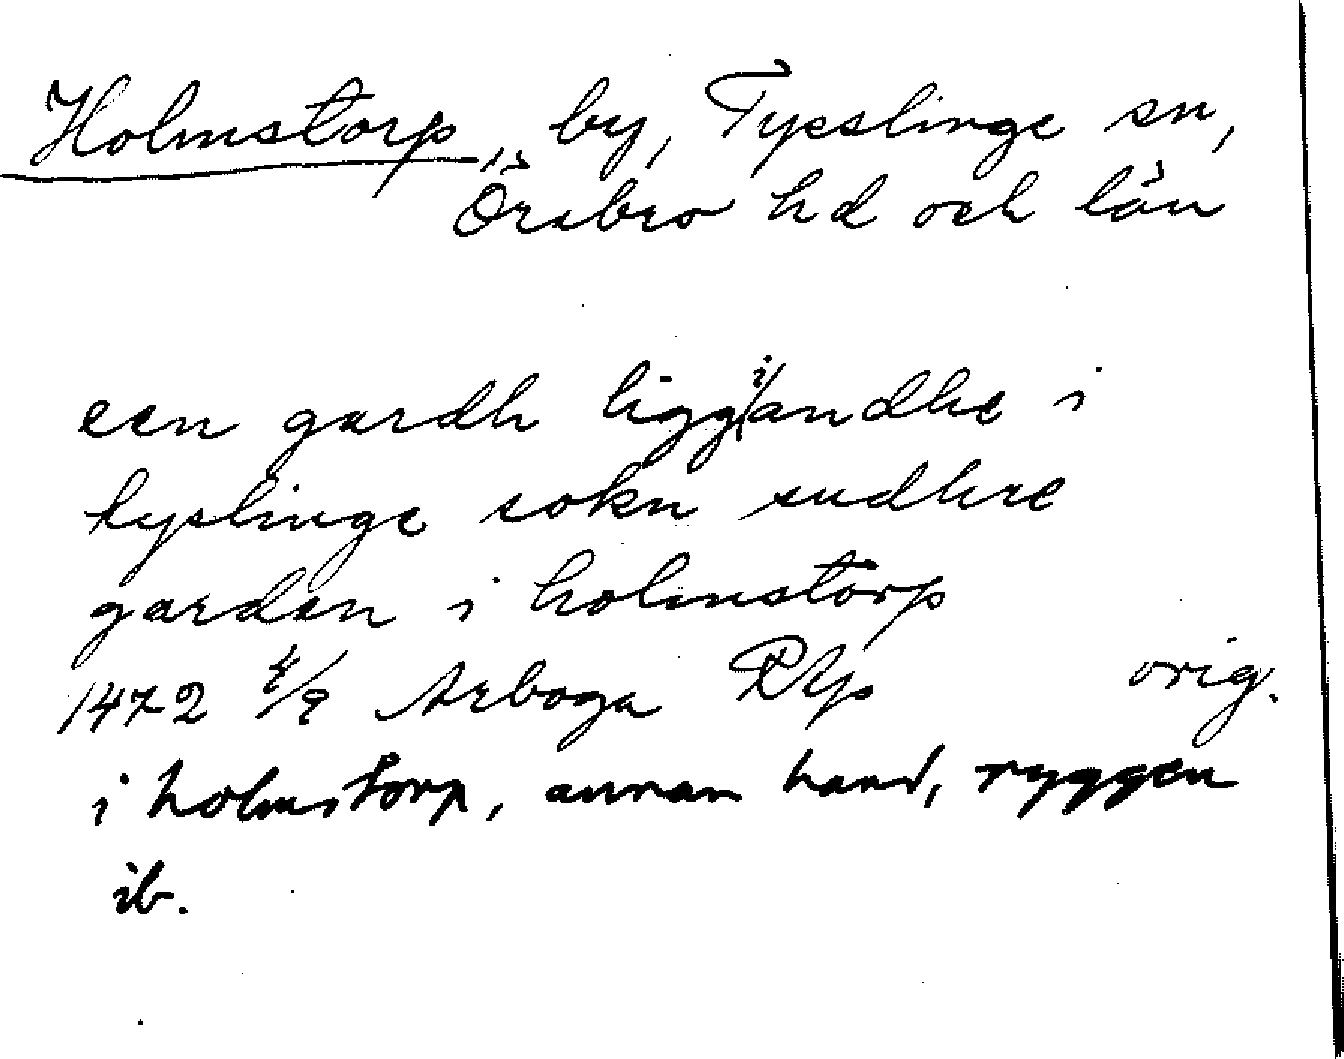 Holmstorp, by, Tysslinge sn,
Örebro hd och län
een gardh ligg i/andhe i
tyslinge sokn sudhre
garden i holmstorp
1472 4/9 Arboga RAp orig.
i holmstorp, annan hand, ryggen
ib.